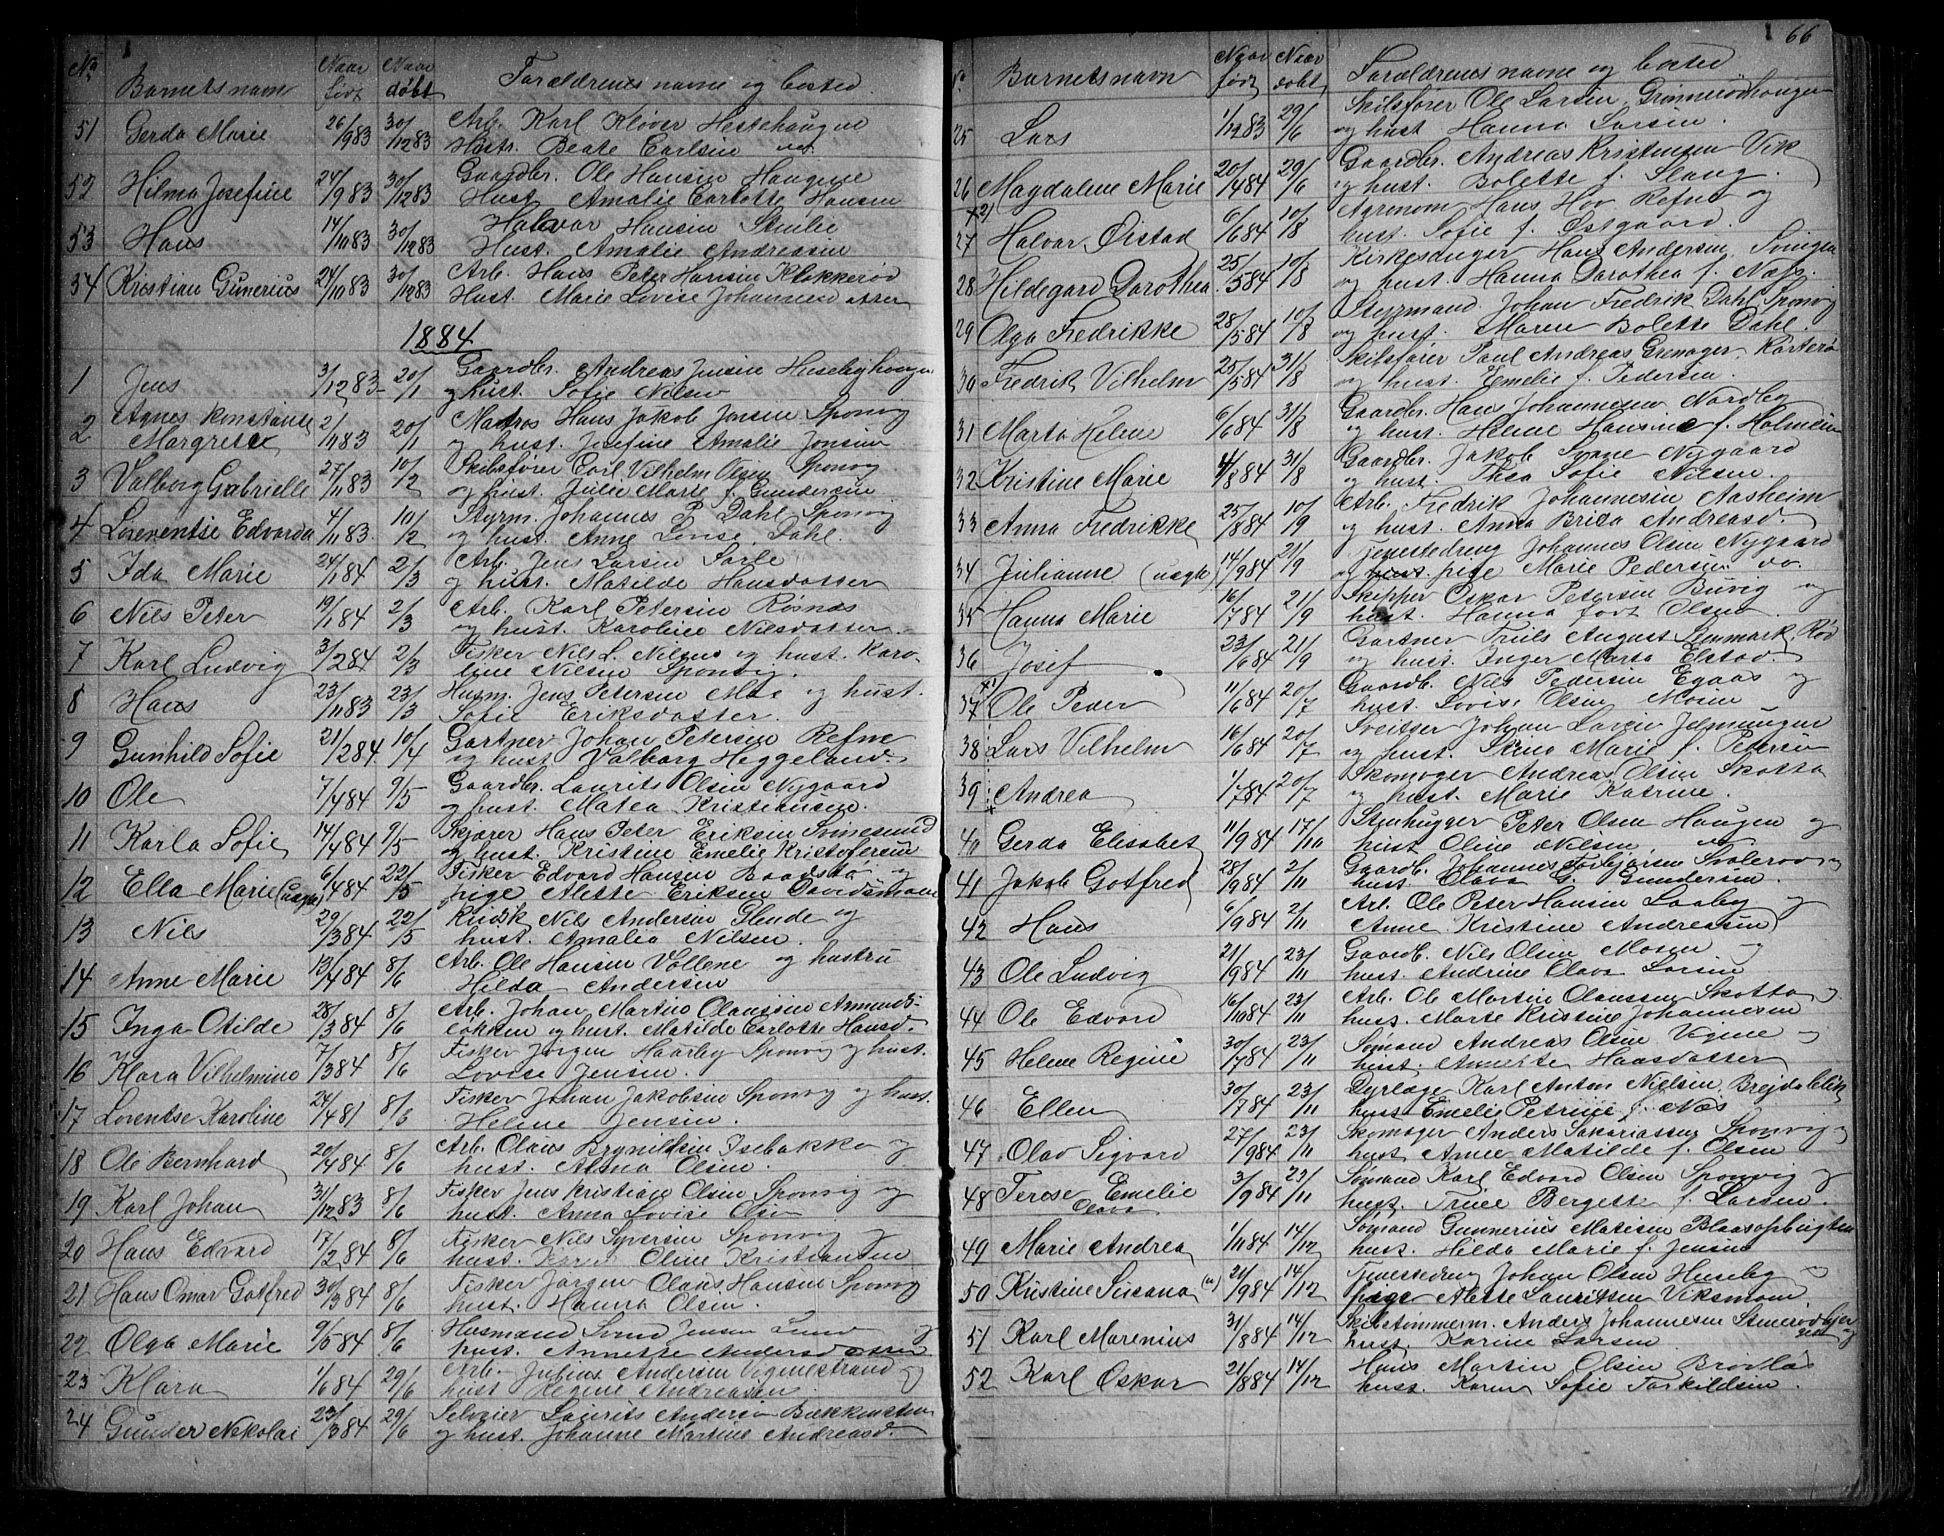 No Barnets navn Naar født Naar døbt Forældrenes navne og bosted.
51 Gerda Marie 26/9 83 30/12 83 Arb. Karl Kløver Hestehaugen
Hustr. Beate Carlsen
52 Hilma Josefine 24/9 83 30/12 83 Gaardbr. Ole Hansen Haugene
Hust. Amalie Carlotte Hansen
53 Hans 14/10 83 30/12 83 Halvor Hansen Stenlie
Hust. Amalie Andreasen
54 Kristian Gunerius 24/10 83 30/12 83 Arb. Hans Peter Hansen Klokkerød
Hust. Marie Lovise Johannesd atter
1884
1 Jens 3/12 83 20/1 Gaardbr. Andreas Jensen Husebyhaugen
og hust. Sofie Nilsen
2 Agnes Konstanse Margrete 2/11 83 20/1 Matros Hans Jakob Jensen Sponvig
og hust. Josefine Amalie Jonsen
3 Valborg Gabrielle 27/11 83 10/2 Skibsfører Carl Vilhelm Olsen Sponvig
og hust. Julie Marie f. Gundersen
4 Lorentse Edvarda 4/11 83 10/2 Styrm. Johannes P. Dahl Sponvig
og hust. Anne Lovise Dahl.
5 Ida Marie 24/1 84 2/3 Arb. Jens Larsen Sorle
og hust. Matilde Hansdatter
6 Nils Peter 19/1 84 2/3 Arb. Karl Petersen Røsnæs
og hust. Karoline Nilsdatter
7 Karl Ludvig 3/2 84 2/3 Fisker Nils L. Nilsen og hust. Karo-
line Nilsen Sponvig.
8 Hans 23/11 83 23/3 Husm. Jens Petersen Moe og hust.
Sofie Eriksdatter.
9 Gunhild Sofie 21/2 84 10/4 Gartner Johan Petersen Refne
og hust. Valborg Heggeland.
10 Ole 7/4 84 9/5 Gaardbr. Laurits Olsen Nygaard
og hust. Matea Kristiansen.
11 Karla Sofie 14/4 84 9/5 Skjærer Hans Peter Eriksen Svinesund
og hust. Kristine Emelie Kristofersen
12 Ella Marie (uægte) 6/4 84 22/5 Fisker Edvard Hansen Baadstø og
pige Alette Eriksen
13 Nils 29/3 84 22/5 Nils Andersen Glende og
hust. Amalia Nilsen.
14 Anne Marie 13/4 84 8/6 Arb. Ole Hansen Vollene og hustru
Hilda Andersen
15 Inga Otilde 28/3 84 8/6 Arb. Johan Martin Olaussen Amunds-
løkken og hust. Matilde Carlotte Hansd.
16 Klara Vilhelmine 7/3 84 8/6 Fisker Jørgen Haarby Sponvig og hust.
Lovise Jensen.
17 Lorentse Karoline 24/4 81 8/6 Fisker Johan Jakobsen Sponvig og hust.
Helene Jensen.
18 Ole Bernhard 20/4 84 8/6 Arb. Olaus Brynildsen Isebakke og
hust. Olsen.
19 Karl Johan 31/12 83 8/6 Fisker Jens Kristian Olsen Sponvig og
hust. Anna Lovise Olsen
20 Hans Edvard 17/2 84 8/6 Fisker Nils Syversen Sponvig og
hust. Karen Oline Kristiansen
21 Hans Omar Gotfred 30/3 84 8/6 Fisker Jørgen Olaus Hansen Sponvig
hust. Hanna Olsen.
22 Olga Marie 9/5 84 8/6 Husmand Svend Jensen Lund og
hust. Annette Andersd atter
23 Klara 1/6 84 29/6 Arb. Julius Andersen Vignestrand og
hust. Regine Andreasen
24 Gunder Nikolai 23/3 84 29/6 Laurits Andersen Bækkensten
og hust. Johanne Martine Andreasd.
66
No Barnets navn Naar født Naar døbt Forældrenes navne og bosted
25 Lars 1/12 83 29/6 Skibsfører Ole Larsen Grimmerødhaugen
og hust. Hanna Larsen.
26 Magdalene Marie 20/4 84 29/6 Gaardbr. Andreas Kristensen Vik
og hust. Bolette f. Stang.
27 Halvor Ørstad 6/6 84 10/8 Agronom Hans Hov Refne og
hust. Sofie f. Østgaard.
28 Hildegard Dorothea 25/5 84 10/8 Kirkesanger Hans Andersen Svingen
og hust. Hanna Dorothea f. Næss.
29 Olga Fredrikke 28/5 84 10/8 Styrmand Johan Fredrik Dahl Sponvig
og hust. Maren Bolette Dahl.
30 Fredrik Vilhelm 25/5 84 31/8 Skibsfører Paul Andreas Grenager
og hust. Emelie f. Pedersen.
31 Marta Helene 6/6 84 31/8 Gaardbr. Hans Johannesen Nordby
og hust. Helene Hansine f. Holmsen
32 Kristine Marie 4/8 84 31/8 Gaardbr. Jakob Svane Nygaard
og hust. Thea Sofie Nilsen.
33 Anna Fredrikke 25/8 84 10/9 Arb. Fredrik Johannesen Aasheim
og hust. Anna Brita Andreasd.
34 Julianne (uægte) 14/9 84 21/9 Tjenestedreng Johannes Olsen Nygaard
og pige Marie Pedersen do.
35 Hanna Marie 16/7 84 21/9 Skipper Oskar Petersen Buvig og
hust. Hanna født Olsen.
36 Josef 23/6 84 21/9 Gartner Truls August Lenmark Rød
og hust. Inger Marta Elstad.
37 Ole Peder 11/6 84 20/7 Gaardb. Nils Pedersen Egaas og
hust. Lovise Olsen Moen
38 Lars Vilhelm 16/6 84 20/7 Sveitser Johan Larsen
og hust. Stina Marie f. Petersen
39 Andrea 1/7 84 20/7 Skomager Andreas Olsen Skotta
og hust. Marie Katrine.
40 Gerda Elisabet 11/9 84 17/10 Stenhugger Peter Olsen Haugen og
hust Oline Nilsen.
41 Jakob Gotfred 28/9 84 2/11 Gaardb. Johannes Torbjørsen Svalerød og
hust. Olava G. Gundersen.
42 Hans 6/9 84 2/11 Arb. Ole Peter Hansen Laaby og
Anne Kristine Andreasen
43 Ole Ludvig 21/9 84 23/11 Gaardb. Nils Olsen Mosen og
hust. Andrine Olava Larsen
44 Ole Edvard 16/10 84 23/11 Arb. Ole Martin Olaussen Skotta og
hust. Marte Kristine Johannesen
45 Helene Regine 30/7 84 23/11 Sømand Andreas Olsen Vigne og
hust. Annette Hansdatter
46 Ellen 30/7 84 23/11 Dyrlæge Karl Anton Nielsen
hust. Emelie Petrine f. Næs
47 Olav Sigvard 27/9 84 23/11 Skomager Anders Sakariassen Sponvig og
hust. Anne Matilde f. Olsen
48 Terese Emelie Olava 3/9 84 23/11 Sømand Karl Edvard Olsen Sponvig og
hust. Trine Bergette f. Larsen.
49 Marie Andrea 1/11 84 14/12 Sømand Gunnerius Matisen Blaasopbugten
hust. Hilda Marie f. Jensen
50 Kristine Susana (u) 21/9 84 14/12 Tjenestedreng Johan Olsen Huseby og
pige Alette Lauritsen Viksmoen
51 Karl Marenius 31/8 84 14/12 Skibstømmerm. Anders Johannesen
hust. Karine Larsen
52 Karl Oskar 21/8 84 14/12 Hans Martin Olsen Brovløs
hust. Karen Sofie Torkildsen.